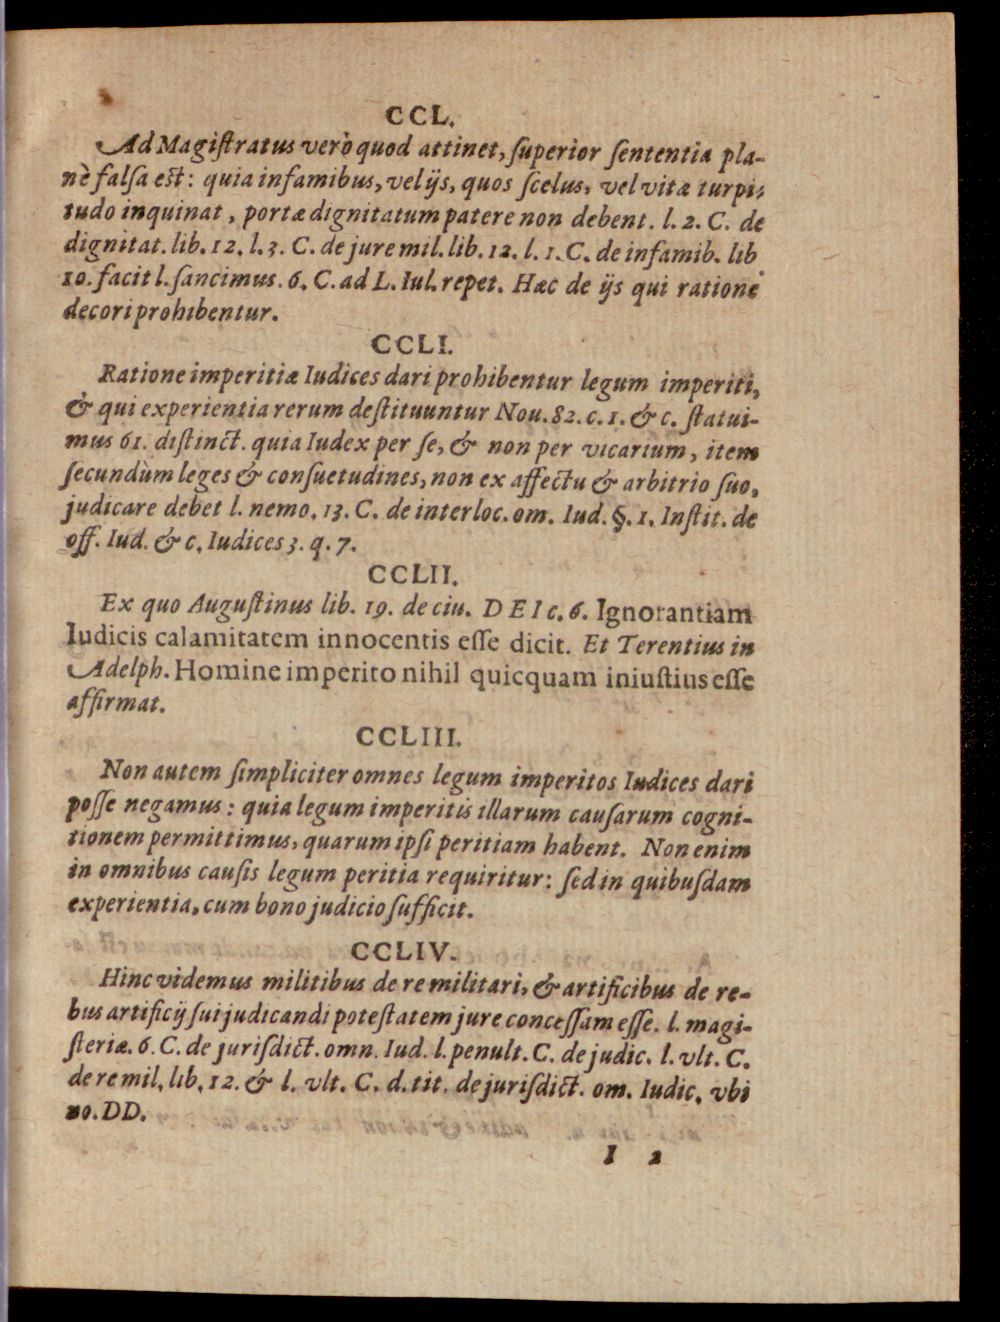 CCL.
Ad Magiſtratus verò quod attinet, ſuperior ſententia pla-
nè falſa eſt: quia infamibus, vel ijs, quos ſcelus, vel vitæ turpi-
tudo inquinat, portæ dignitatum patere non debent. l. 2. C. de
dignitat. lib. 12. l. 3. C. de jure mil. lib. 12. l. 1. C. de infamib. lib
10. facit l. ſancimus. 6. C. ad L. Iul. repet. Hæc de ijs qui ratione
decori prohibentur.
CCLI.
Ratione imperitiæ Iudices dari prohibentur legum imperiti,
& qui experientia rerum deſtituuntur Nou. 82. c. 1. & c. ſtatui-
mus 61. diſtinct. quia Iudex per ſe, & non per vicarium, item
ſecundùm leges & conſuetudines, non ex affectu & arbitrio ſuo,
judicare debet l. nemo. 13. C. de interloc. om. Iud. §. 1. Inſtit. de
off. Iud. & c. Iudices 3. q. 7.
CCLII.
Ex quo Auguſtinus lib. 19. de ciu. DEI c. 6. Ignorantiam
Iudicis calamitatem innocentis eſſe dicit. Et Terentius in
Adelph. Homine imperito nihil quicquam iniuſtius eſſe
affirmat.
CCLIII.
Non autem ſimpliciter omnes legum imperitos Iudices dari
poſſe negamus: quia legum imperitis illarum cauſarum cogni-
tionem permittimus, quarum ipſi peritiam habent. Non enim
in omnibus cauſis legum peritia requiritur: ſed in quibuſdam
experientia, cum bono judicio ſufficit.
CCLIV.
Hinc videmus militibus de re militari, & artificibus de re-
bus artificij ſui judicandi poteſtatem jure conceſſam eſſe. l. magi-
ſteriæ. 6. C. de juriſdict. omn. Iud. l. penult. C. de judic. l. vlt. C.
de re mil. lib. 12. & l. vlt. C. d. tit. de juriſdict. om. Iudic. vbi
no. DD.
I 2